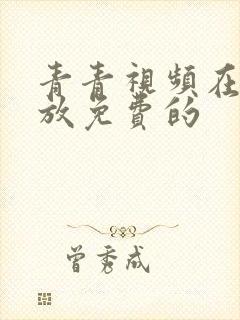 青青視頻在
放免費的
曾秀成